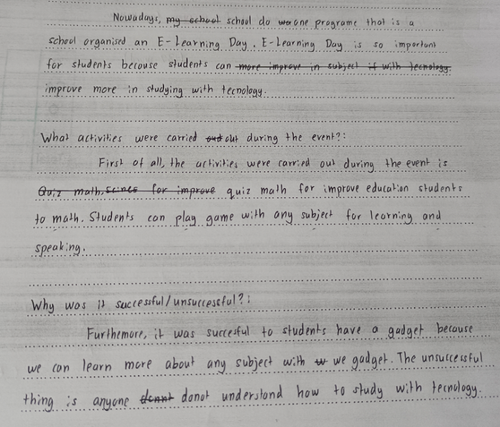 Nowadays, my school school do one programe that is a
school organised an E-Learning Day. E-Learning Day is so important
for students because students can more improve in subject it with tecnology
improve more in studying with tecnology.
What activities were carried out out during the event?:
First of all, the activities were carried out during the event is
Quiz math, scince for improve quiz math for improve education students
to math. Students can play game with any subject for learning and
speaking.
Why was it successful/unsuccessful?:
Furthemore, it was succesful to students have a gadget because
we can learn more about any subject with we gadget. The unsuccessful
thing is anyone donnt donot understand how to study with tecnology.